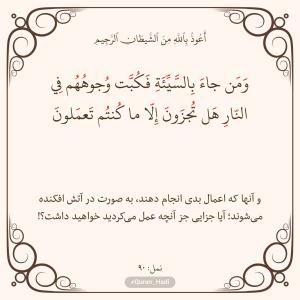 أَعُوذُ بِاللَّهِ مِنَ الشَّيْطَانِ الرَّجِيمِ
وَمَن جاءَ بِالسَّيِّئَةِ فَكُبَّت وُجوهُهُم فِي
النّارِ هَل تُجزَونَ إِلّا ما كُنتُم تَعمَلونَ
و آنها که اعمال بدی انجام دهند، به صورت در آتش افکنده
می‌شوند؛ آیا جزایی جز آنچه عمل می‌کردید خواهید داشت؟!
نمل: ۹۰
@Quran_Hadi